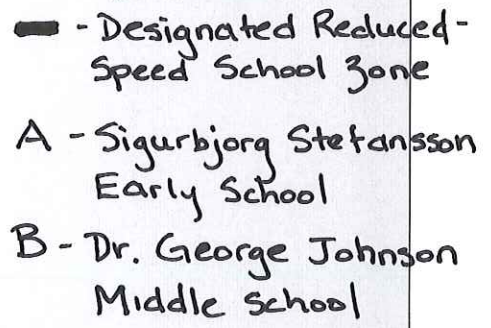 - Designated Reduced-
Speed School Zone
A - Sigurbjorg Stefansson
Early School
B - Dr. George Johnson
Middle School